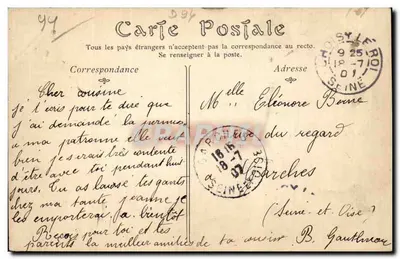 94
D94
Carte Postale
Tous les pays étrangers n'acceptent pas la correspondance au recto.
Se renseigner à la poste.
Correspondance
Adresse
CHOISY LE ROI
9 25
18 -7
07
SEINE
Cher cousine
je t'écris pour te dire que
j'ai demandé la permis
a ma patronne elle veut
bien je serais très contente
d'être avec toi pendant huit
jours. Tu as laissé tes gants
chez ma tante Jeanne je
les emporterai. a bientôt
Reçois pour toi et tes
parents la meilleur amitiés de ta cousine B. Gauthreau
Melle Eléonore Boine
du regard
18 -7
07
SEINE ET OISE
(Seine et Oise)